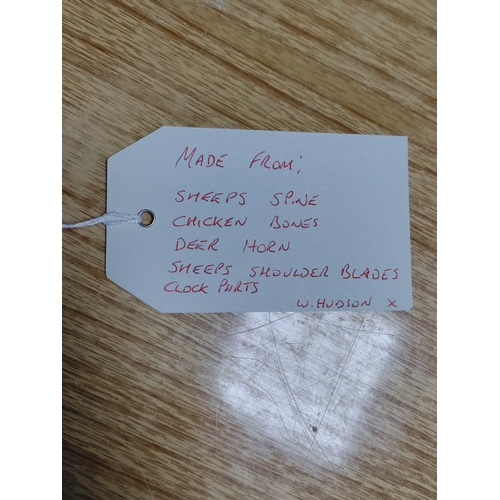 MADE FROM;
SHEEPS SPINE
CHICKEN BONES
DEER HORN
SHEEPS SHOULDER BLADES
CLOCK PARTS
W. HUDSON X